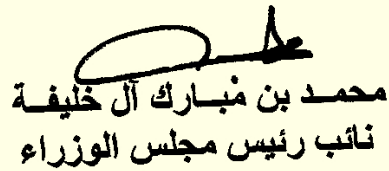 محمــد بن مُبــارك آل خليفــة
نائب رئيس مجلس الوزراء